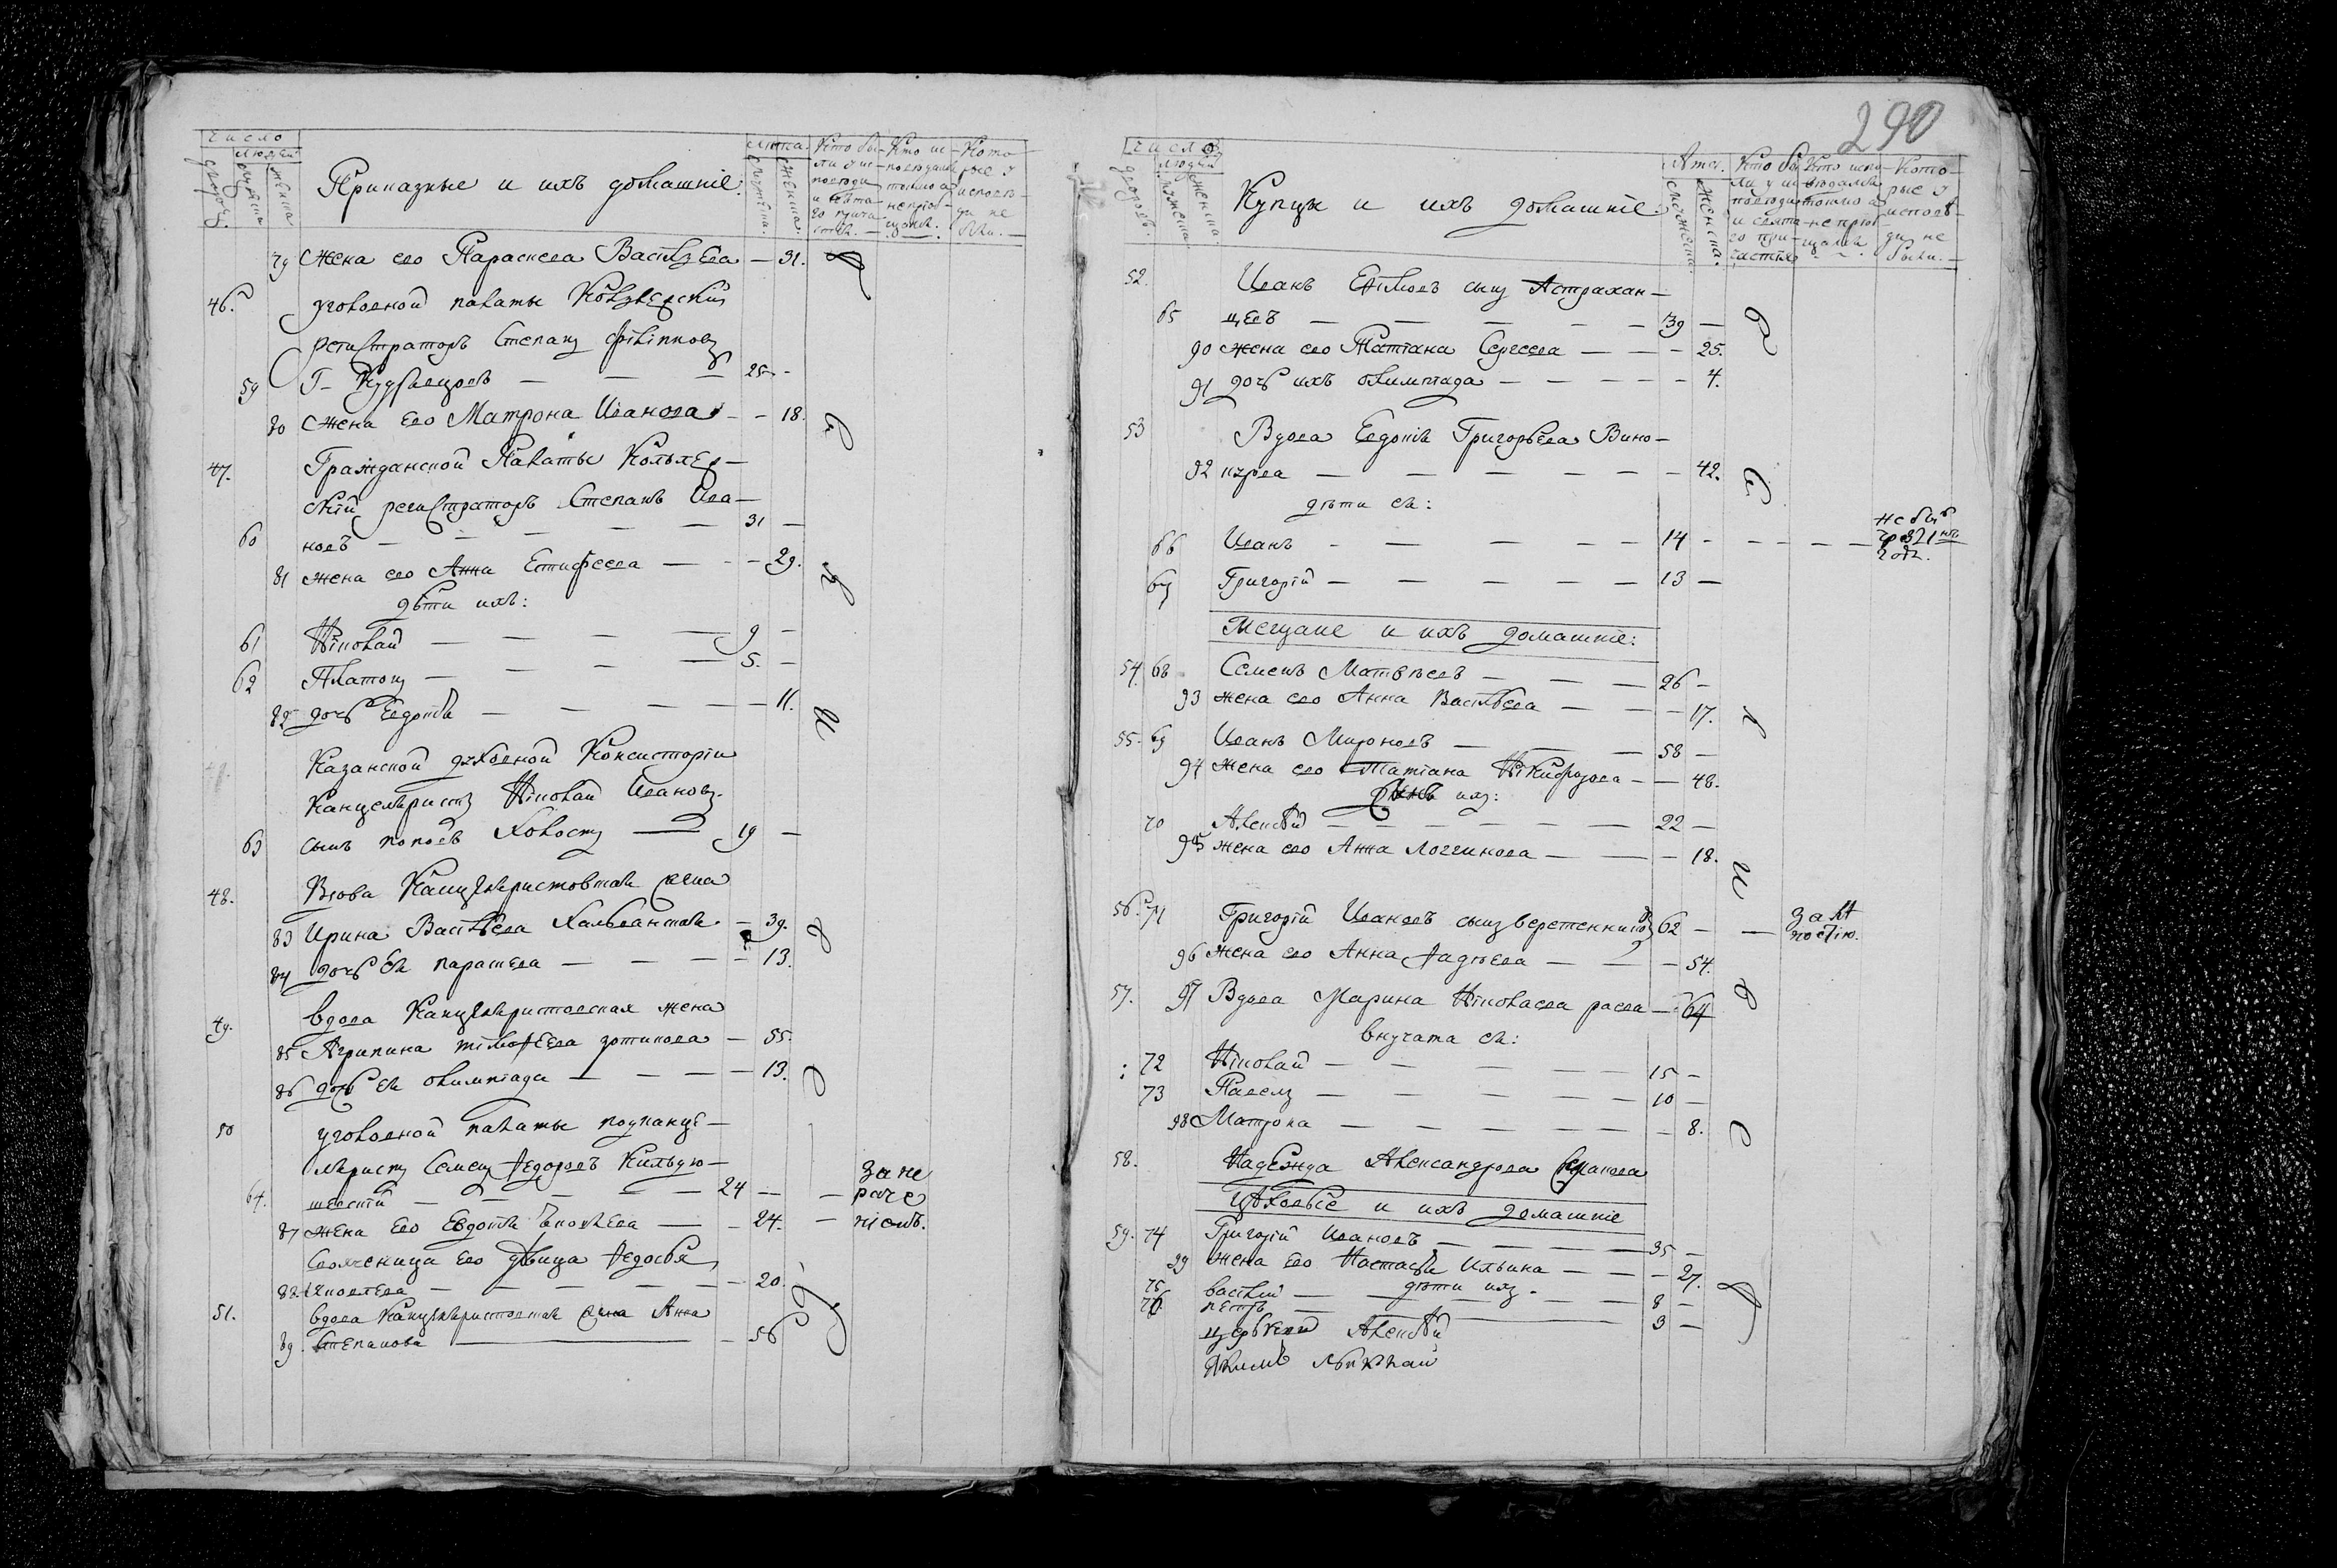 число
людей
дворовъ.
мужеска
женска
Приказные и ихъ домашніе:
лѣта.
мужеска.
женска.
Кто бы-
ли у ис-
повѣди
и свята-
го прича-
стія. —
Кто ис-
повѣдались
токмо а
непріоб-
щались.
Кото-
рые у
исповѣ-
ди не
были. —
79 Жена его Параскева Васильева — 31.
46. уголовной палаты Коллежскій
регистраторъ Степанъ Филиповъ
59 25 -
80 Жена его Матрона Иванова - - 18.
47. Гражданской Палаты Коллеж-
скій регистраторъ Степанъ Ива-
60 новъ — — — — — 31 —
81 жена его Анна Етифеева — - - 29.
дѣти ихъ:
61 Николай — — — — 9 —
62 Платонъ — — — — 5. —
82 дочь Евдокія — — — — 11.
Казанской духовной Консисторіи
Канцеляристъ Николай Ивановъ
63 сынъ поповъ — 19 —
48. Вдова Канцеляристовская жена
83 Ирина Васильева — 39.
84 дочь ея параскева — — — — 13.
49. вдова Канцеляристовская жена
85 Агрипина тимоѳеева зотикова — 55.
86 дочь ея олимпіада — — — — 13.
50 уголовной палаты подканце-
ляристъ Семенъ Ѳедоровъ Кильдю-
64. шевскій — — — — — 24 — —
за не
раче
ніемъ.
87 жена его Евдокія Яковлева — — 24. —
Свояченица его дѣвица Ѳедосья
88 Яковлева — — — — — 20
51. вдова Канцеляристовская жена Анна
89. Степанова — — 56
290
число
людей
дворовъ.
мужеска
женска
Купцы и ихъ домашніе:
Лѣта.
мужеска.
женска.
Кто бы-
ли у ис-
повѣди
и свята-
го при-
частія
Кто испо-
вѣдались
токмо а
не пріоб-
щались
Кото-
рые у
исповѣ-
ди не
были. —
52. Иванъ сынъ Астрахан-
65 цевъ — — — — — 39 —
90 жена его Татіана Сергеева — — - 25.
91 дочь ихъ олимпіада — — — — - 4.
53 Вдова Евдокія Григорьева Вино-
92 курва — — — — — - 42.
дѣти ея:
66 Иванъ - — — — — 14 - - - — —
не былъ
1нъ
годъ.
67 Григорій — — — — — 13 —
Мещане и ихъ домашніе:
54. 68 Семенъ Матвѣевъ — — — 26 -
93 жена его Анна Васильева — — - 17.
55. 69 Иванъ Мироновъ — — — 58 —
94 жена его Татіана Никифорова - — 48.
сынъ ихъ:
70 Алексѣй — — — — — — 22 —
95 жена его Анна Логгинова — — — 18.
56. 71 Григорій Ивановъ сынъ веретенниковъ 62 — —
96 жена его Анна Ѳадѣева — — - 54.
57. 97 Вдова Марина Николаева — 64
внучата ея:
: 72 Николай — — — — — 15 -
73 Павелъ — — — — — 10 —
98 Матрона — — — — — - 8.
58. Надежда Александрова
Цѣховые и ихъ домашніе
59. 74 Григорій Ивановъ — — — — 35 —
99 жена его Настасья Ильина — — - 27.
дѣти ихъ.
75 василій — — — — 8 —
76 петръ — — — 3 —
церькви Алексѣй